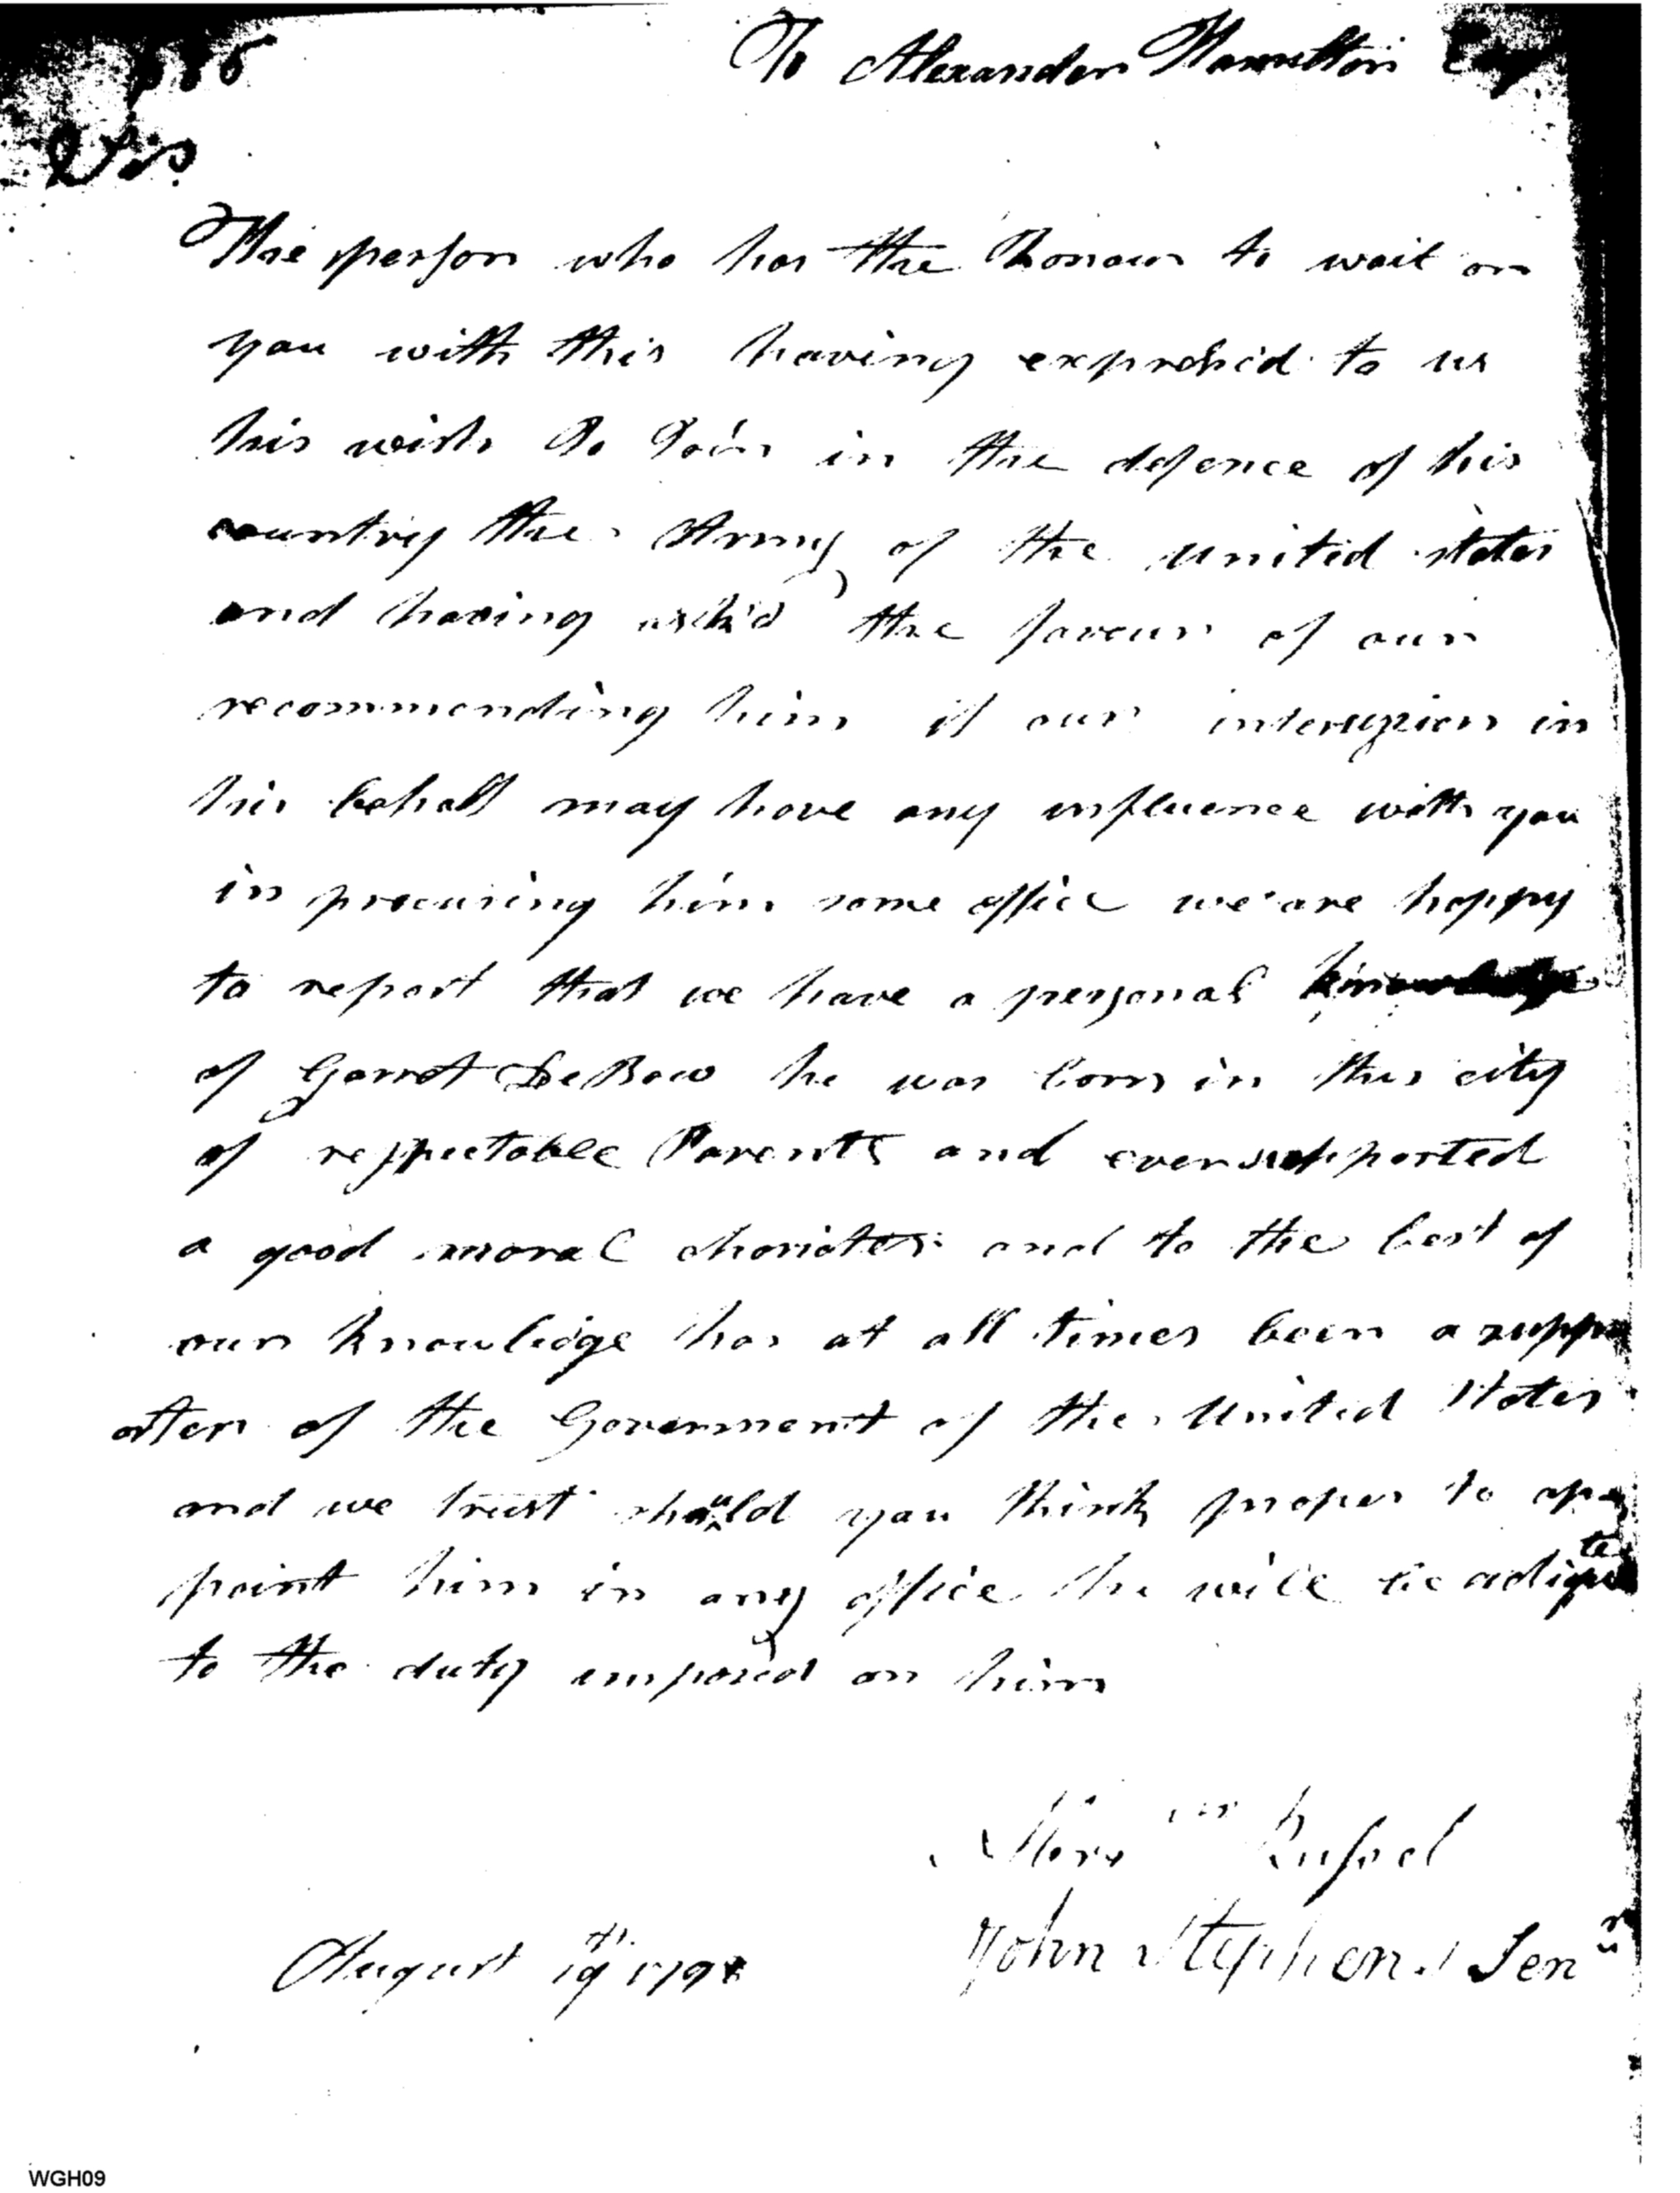 To Alexander Hamilton Esq
Sir
The person who has the honour to wait on
you with this having express'd to us
his wish to Join in the defence of his
country the Army of the united states
and having ask'd the favour of our
recommending him if our in
his behalf may have any influence with you
in procuring him some office we are happy
to report that we have a personal knowledge
of Garret DeBow he was born in this city
of respectable Parents and ever supported
a good moral and to the best of
our knowlidge has at all times been a suppo
orter of the Goverment of the United States
and we trust should you think proper to ap
point him in any office he will be
to the duty imposed on him
Russel
John Stephens Senr
August 19th 1798
WGH09